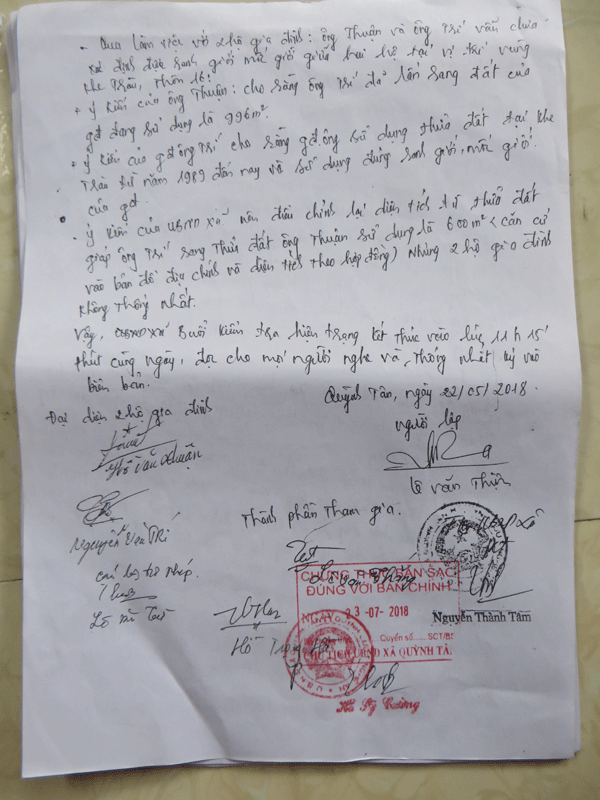 - Qua làm việc với 2 hộ gia đình: ông Thuận và ông Trí vẫn chưa
xá định được ranh giới mốc giới giữa hai hộ tại vị trí vùng
khe Trằu, Thôn 16:
+ ý kiến của ông Thuận: cho rằng ông Trí đã lấn sang đất của
gđ đang sử dụng là 996m².
+ ý kiến của gđ ông Trí cho rằng gđ ông sử dụng thửa đất tại khe
Trằu từ năm 1989 đến nay và sử dụng đúng ranh giới, mốc giới
của gđ.
- ý kiến của UBND xã nên điều chỉnh lại diện tích từ thửa đất
giáp ông Trí sang Thửa đất ông Thuận sử dụng là 600m² (căn cứ
vào bản đồ địa chính và diện tích theo hợp đồng) Nhưng 2 hộ gia đình
không thống nhất.
Vậy, UBND xã Buổi kiểm tra hiện trạng kết thúc vào lúc 11h15'
phút cùng ngày, đọc cho mọi người nghe và thống nhất ký vào
biên bản.
Quỳnh Tân, ngày 22/05/2018.
Đại diện 2 hộ gia đình
người lập
Hồ Văn Thuận
Lê Văn Thiện
Thành phần Tham gia.
Nguyễn Văn Trí
CHỨNG THỰC BẢN SAO
ĐÚNG VỚI BẢN CHÍNH
NGÀY 23-07-2018
Nguyễn Thành Tâm
Cán bộ tư pháp.
Quyển số ...... SCT/BS
CHỦ TỊCH UBND XÃ QUỲNH TÂN
Hồ Sỹ Cường